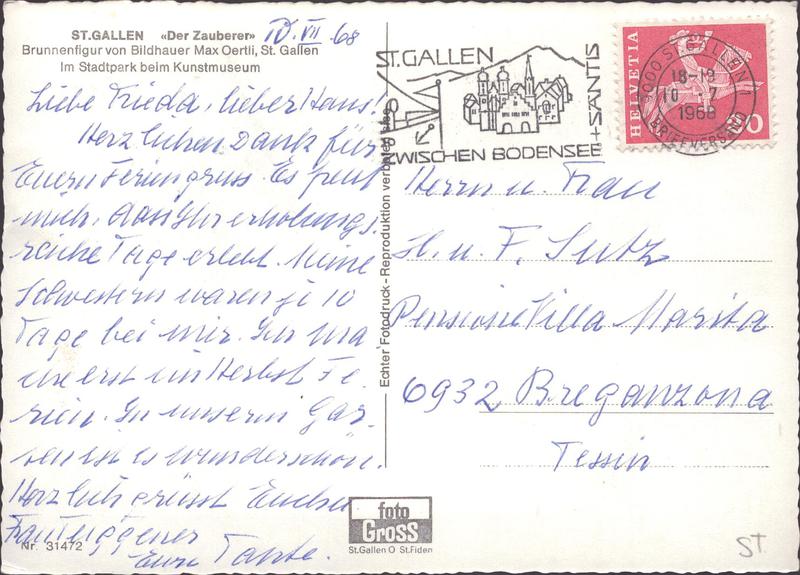 ST.GALLEN «Der Zauberer»
Brunnenfigur von Bildhauer Max Oertli, St. Gallen
Im Stadtpark beim Kunstmuseum
10. VII 68
Liebe Frieda, lieber Hans!
Herzlichen Dank für
Euern Feriengruss. Es freut
mich, dass Ihr erholungs-
reiche Tage erlebt. Meine
Schwestern waren je 10
Tage bei mir.
erst im Herbst Fe-
rien. In unserm Gar-
ten ist es wunderschön.
Herzlich grüsst Euch
Eure Tante.
Nr. 31472
Echter Fotodruck - Reproduktion verboten
foto
Gross
St.Gallen O St.Fiden
ST.GALLEN
+ SÄNTIS
ZWISCHEN BODENSEE
HELVETIA
9000 ST.GALLEN 1
18-19
10.-7
1968
BRIEFVERSAND
Herrn u. Frau
H. u. F. Sutz
Pensione Villa Marita
6932 Breganzona
Tessin
ST.